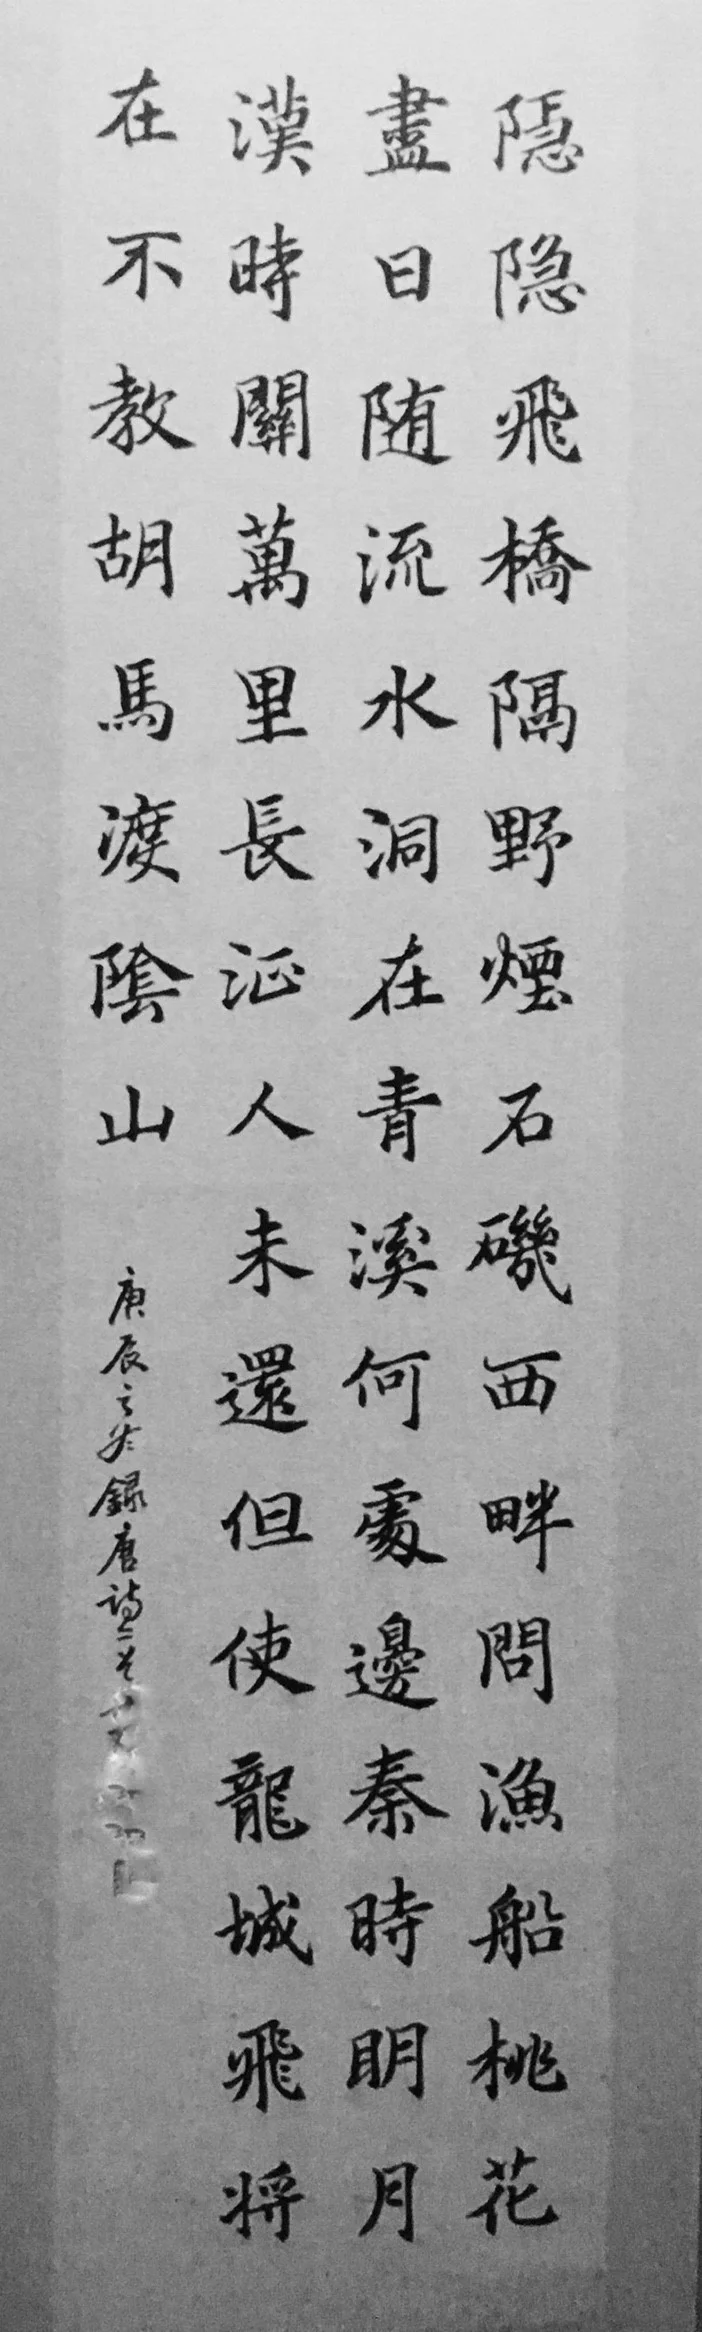 隱隐飛橋隔野煙石磯西畔問漁船桃花
盡日随流水洞在青溪何處邊秦時明月
漢時關萬里長征人未還但使龍城飛将
在不教胡馬渡陰山
庚辰之冬錄唐詩二首